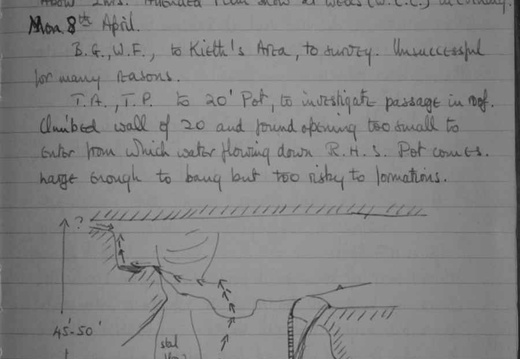 Mon. 8th April.
B.G., W.F., to Kieth's Area, to survey. Unsuccessful
for many reasons.
T.A., T.P. to 20' Pot, to investigate passage in roof.
Climbed wall of 20 and found opening too small to
enter from which water flowing down R.H.S. Pot comes.
Large enough to bang but too risky to formations.
?
45'-50'
stal